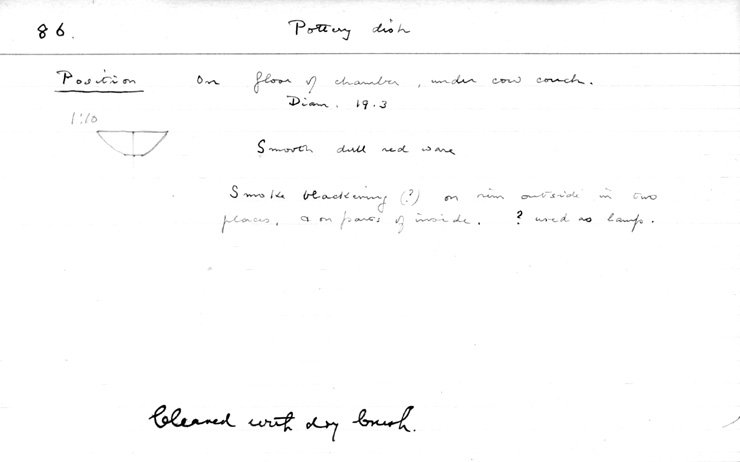 86.
Pottery dish
Position On floor of chamber, under cow couch.
Diam. 19.3
1:10
Smooth dull red ware
Smoke blackening (?) on rim outside in two
places, & on parts of inside. ? used as lamp.
Cleaned with dry brush.